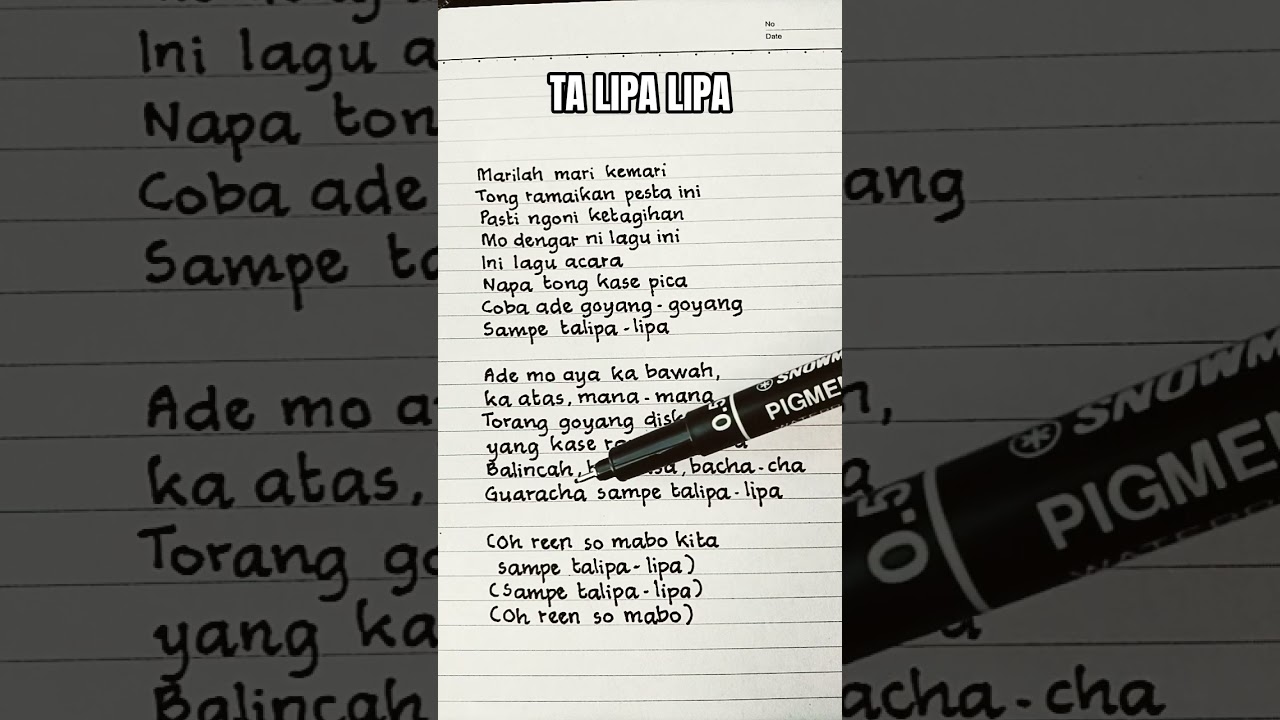 No
Date
TA LIPA LIPA
Marilah mari kemari
Tong ramaikan pesta ini
Pasti ngoni ketagihan
Mo dengar ni lagu ini
Ini lagu acara
Napa tong kase pica
Coba ade goyang-goyang
Sampe talipa-lipa
Ade mo aya ka bawah,
ka atas, mana-mana
Torang goyang
yang kase
Balincah, bacha-cha
Guaracha sampe talipa-lipa
(Oh reen so mabo kita
sampe talipa-lipa)
(Sampe talipa-lipa)
(Oh reen so mabo)
SNOWM
PIGME
0.5
Ini lagu a
Napa ton
Coba ade
ang
Sampe ta
Ade mo a
ka atas,
Torang go
yang ka
Balincah
acha-cha
SNOWM
PIGMEN
0.5